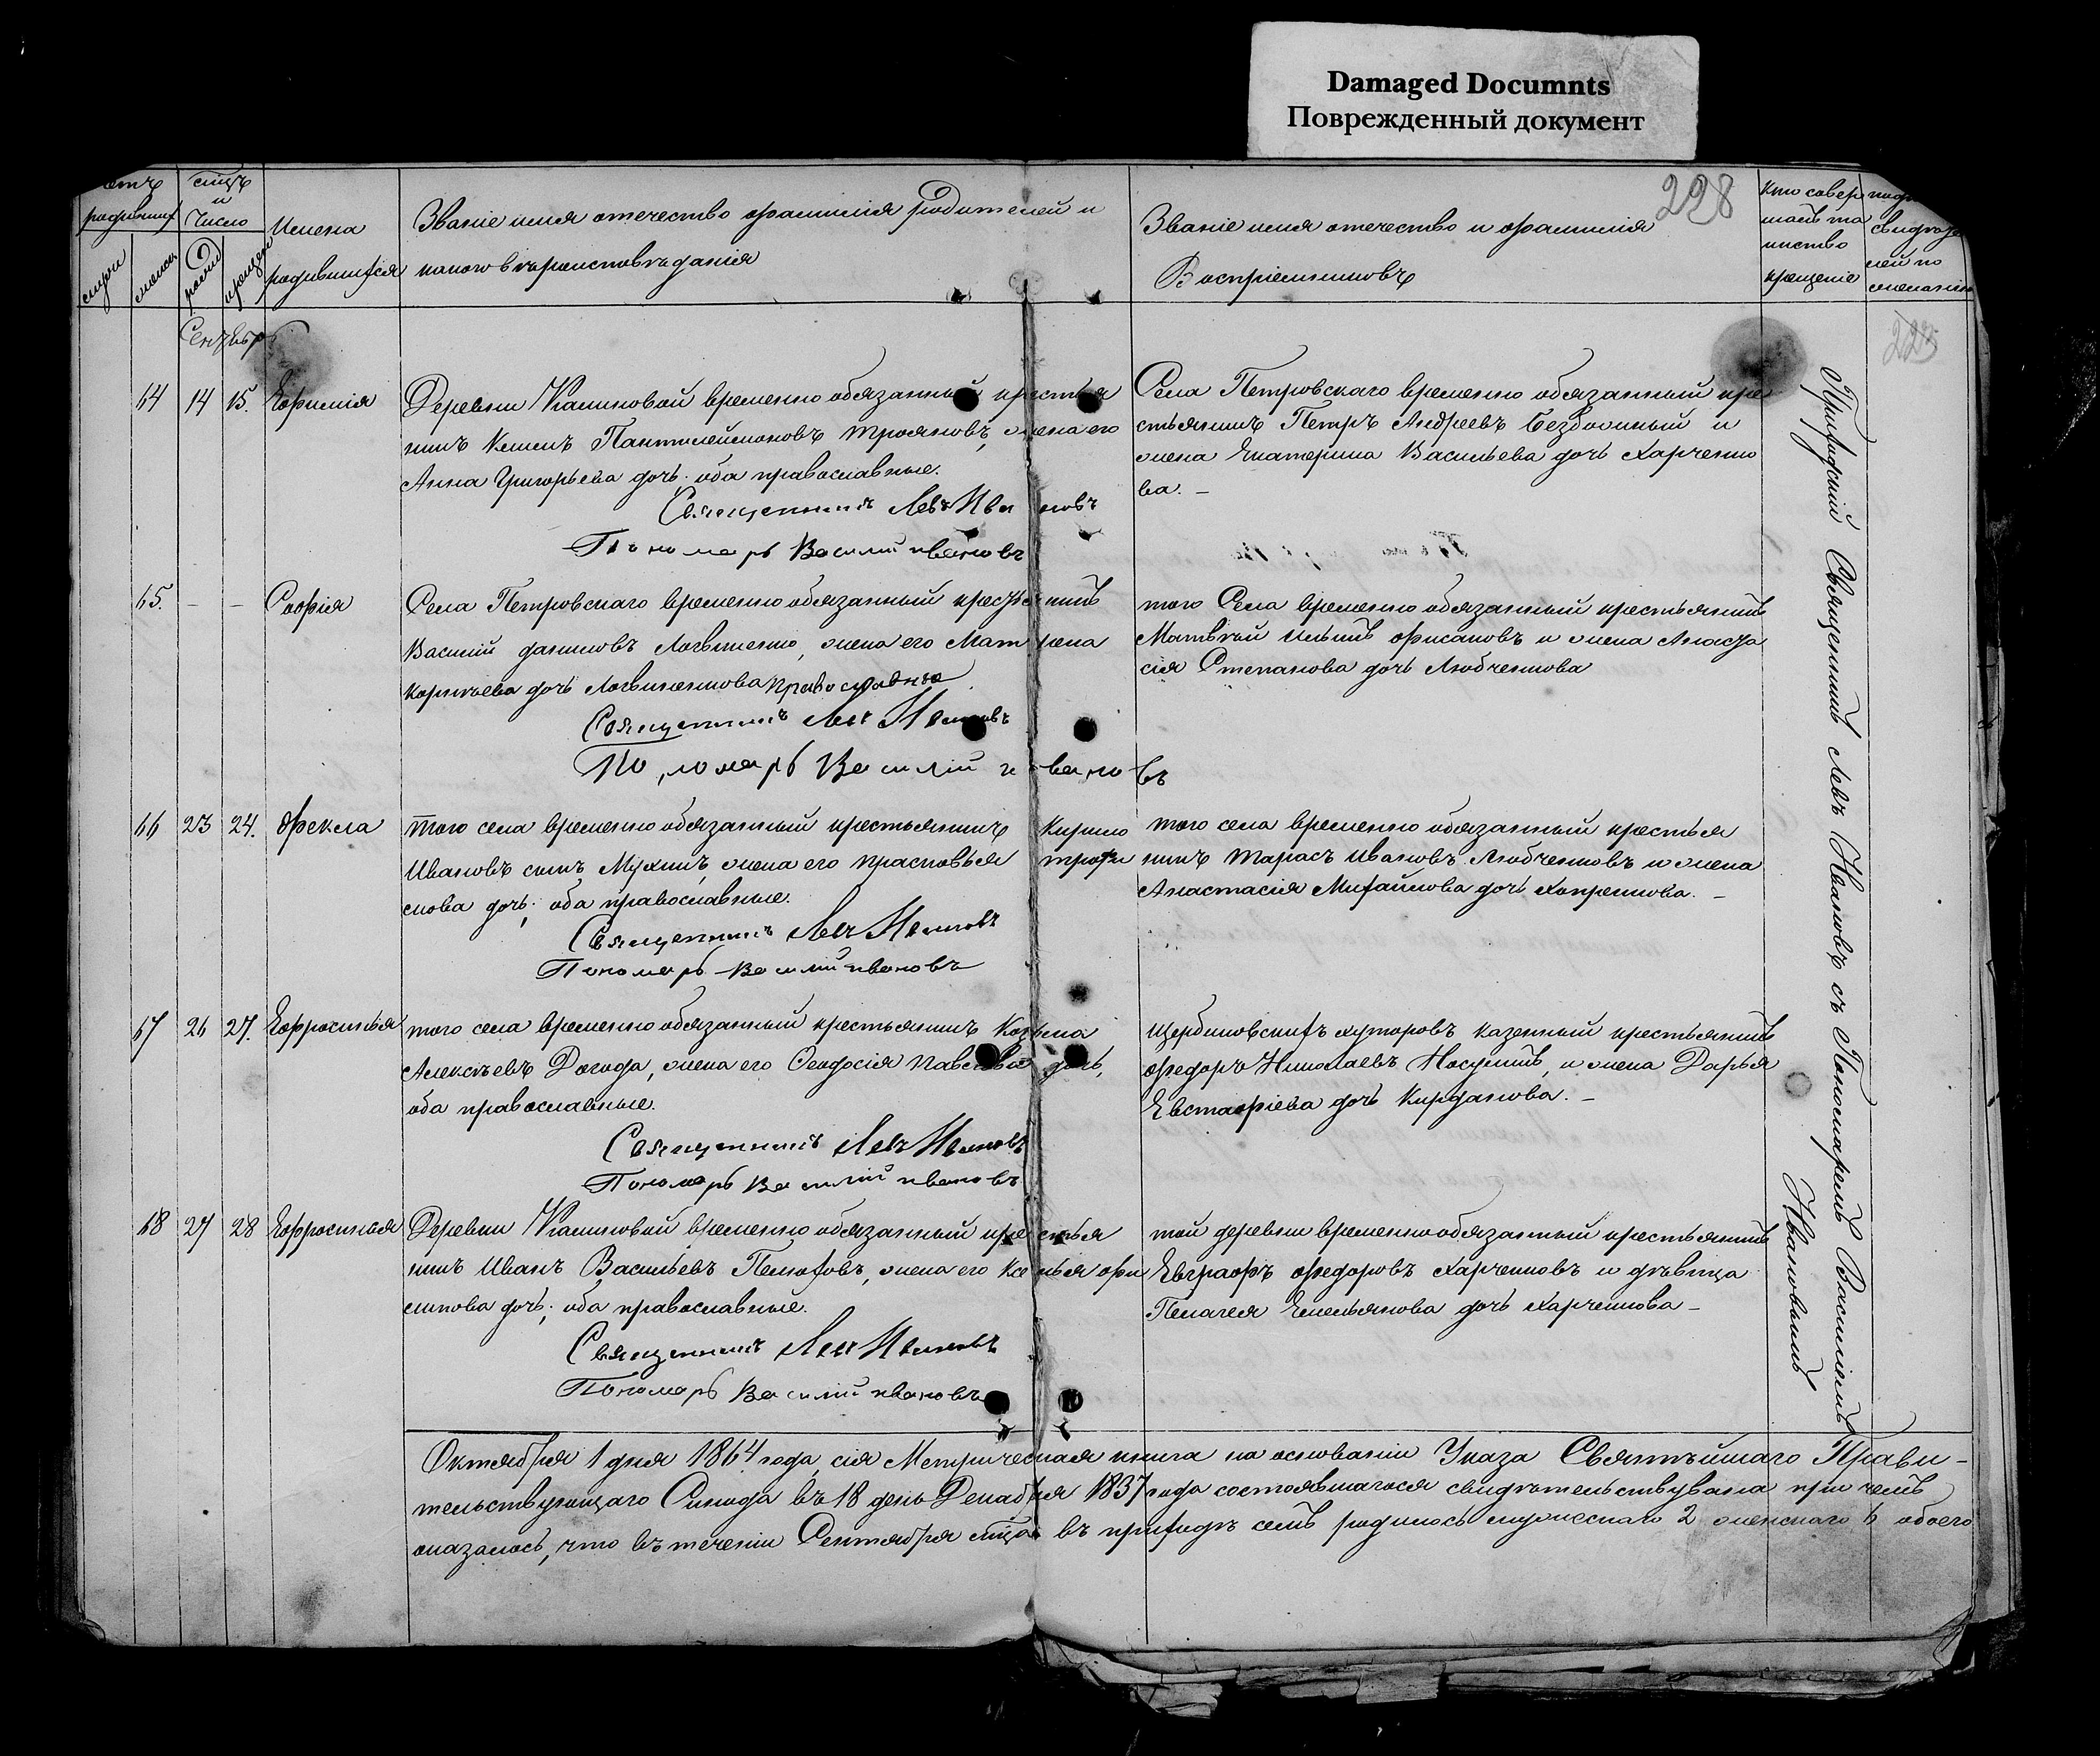 Damaged Documnts
Поврежденный документ
228
родившихъ
Число
мужск
женск
Имена
родившихся
Званіе имя отечество фамилія родителей и
какого вѣроисповѣданія
Званіе имя отечество и фамилія
Воспріемниковъ
Кто совер
шалъ та
инство
крещенія
Сентябр
64 14 15. Ефимія
Деревни Калиновой временно обязанный крестья
нинъ Пантилеймоновъ Трояновъ, жена его
Анна Григорьева дочь. оба православные.
Священникъ Левъ Ивановъ
Пономарь Василій Ивановъ
Села Петровскаго временно обязанный кре
стьянинъ Петръ Андреевъ и
жена Екатерина Васильева дочь Харченко
ва. –
65. – – Софія
Села Петровскаго временно обязанный крестьянинъ
Василій даниловъ Логвиненко, жена его Матрена
Корнѣева дочь Логвиненкова православн
Священникъ Левъ Ивановъ
Пономарь Василій Ивановъ
того Села временно обязанный крестьянинъ
Матвѣй Ильинъ и жена Анаста
сія Степанова дочь Любченкова
66 23 24. Фекла
того села временно обязанный крестьянинъ Кирило
Ивановъ сынъ Мухинъ, жена его прасковья трофи
мова дочь; оба православные.
Священникъ Левъ Ивановъ
Пономарь Василій Ивановъ
того села временно обязанный крестья
нинъ Тарасъ Ивановъ Любченковъ и жена
Анастасія Михайлова дочь
67 26 27. Ефросинья
того села временно обязанный крестьянинъ Козьма
Алексѣевъ Догода, жена его Феодосія Павлова дочь,
оба православные.
Священникъ Левъ Ивановъ
Пономарь Василій Ивановъ
Щербиновскихъ хуторовъ казенный крестьянинъ
Федоръ Николаевъ и жена Дарья
Евстафіева дочь Кирданова. –
68 27 28 Ефросинья
Деревни Калиновой временно обязанный крестья
нинъ Иванъ Васильевъ жена его Ксенья фи
липова дочь; оба православные.
Священникъ Левъ Ивановъ
Пономарь Василій Ивановъ
той деревни временно обязанный крестьянинъ
Евграфъ Федоровъ Харченковъ и дѣвица
Пелагея Емельянова дочь Харченкова –
Приходскій Священникъ Левъ Ивановъ съ Пономаремъ Василіемъ
Ивановымъ
Октября 1 дня 1864 года, сія Метрическая книга на основаніи Указа Святѣйшаго Прави-
тельствующаго Синода въ 18 день Декабря 1837 года состоявшагося свидѣтельствувана при чемъ
оказалось, что въ теченіи Сентября мѣсяца въ приходѣ семъ родилось мужескаго 2 женскаго 6 обоего